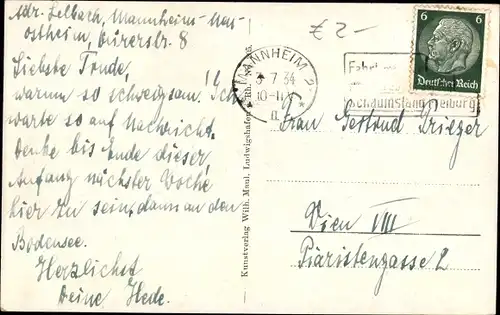 Adr. Selbach, Mannheim-Neu-
ostheim, Dürerstr. 8
Liebste Trude,
warum so schweigsam! Ich
warte so auf Nachricht.
denke bis Ende dieser,
Anfang nächster Woche
hier zu sein, dann an den
Bodensee.
Herzlichst
Deine Hede.
Kunstverlag Wilh. Maul, Ludwigshafen a. Rh.
£ 2-
MANNHEIM 2
7 34
10-11
Fahrt
Schauinsland Freiburg
6 6
Deutsches Reich
Frau Gertrud Prieger
Wien VIII
Piaristengasse 2